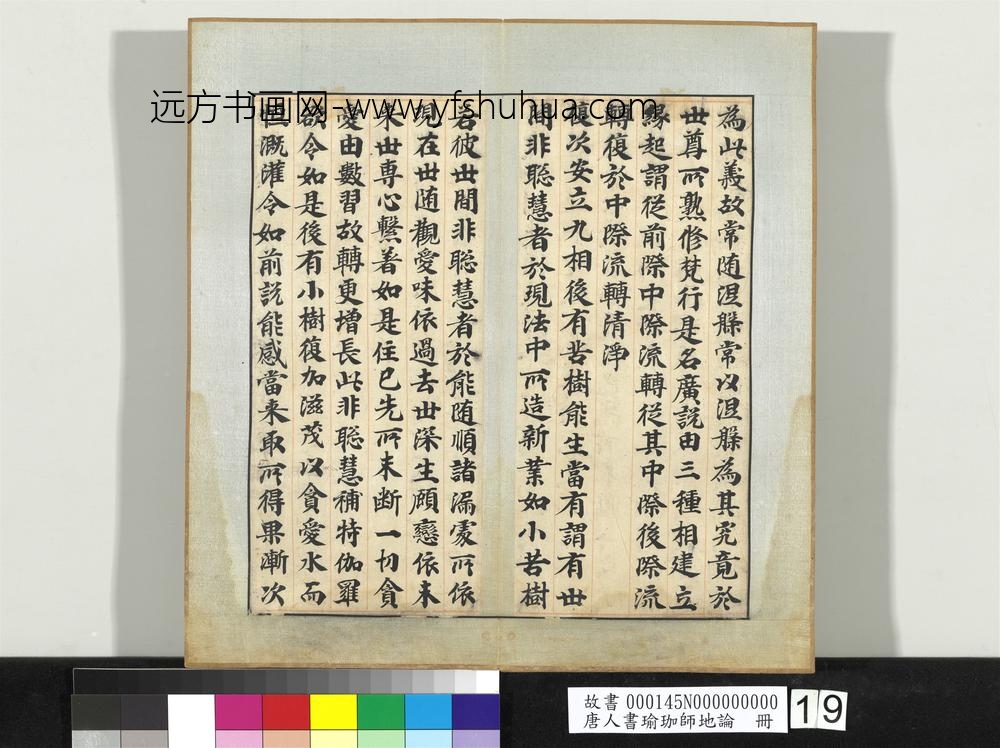 远方书画网-www.yfshuhua.com
為此義故常随涅槃常以涅槃為其究竟於
世尊所熟修梵行是名廣說由三種相建立
緣起謂從前際中際流轉從其中際後際流
轉復於中際流轉清淨
復次安立九相後有苦樹能生當有謂有世
間非聡慧者於現法中所造新業如小苦樹
若彼世間非聡慧者於能随順諸漏處所依
現在世随觀愛味依過去世深生顧戀依未
来世専心繫著如是住已先所未断一切貪
愛由數習故轉更增長此非聡慧補特伽羅
欲令如是後有小樹復加滋茂以貪愛水而
溉灌令如前說能感當来取所得果漸次
故書 000145N000000000
唐人書瑜珈師地論 冊
19